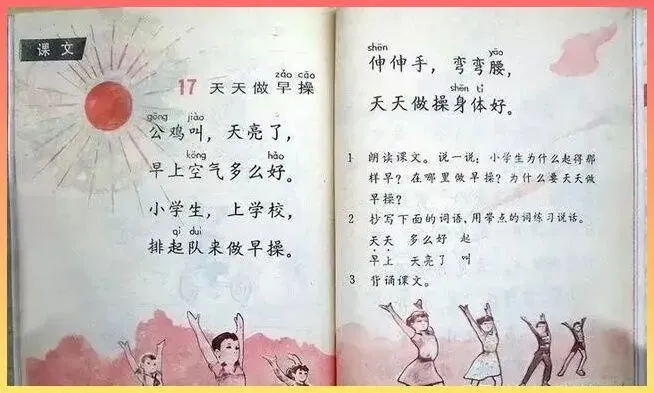 课文
zǎo cāo
17 天天做早操
gōng jiào
公鸡叫，天亮了，
kōng hǎo
早上空气多么好。
小学生，上学校，
qǐ duì
排起队来做早操。
shēn yāo
伸伸手，弯弯腰，
shēn tǐ
天天做操身体好。
1 朗读课文。说一说：小学生为什么起得那
样早？在哪里做早操？为什么要天天做
早操？
2 抄写下面的词语，用带点的词练习说话。
天天 多么好 起
早上 天亮了 叫
3 背诵课文。